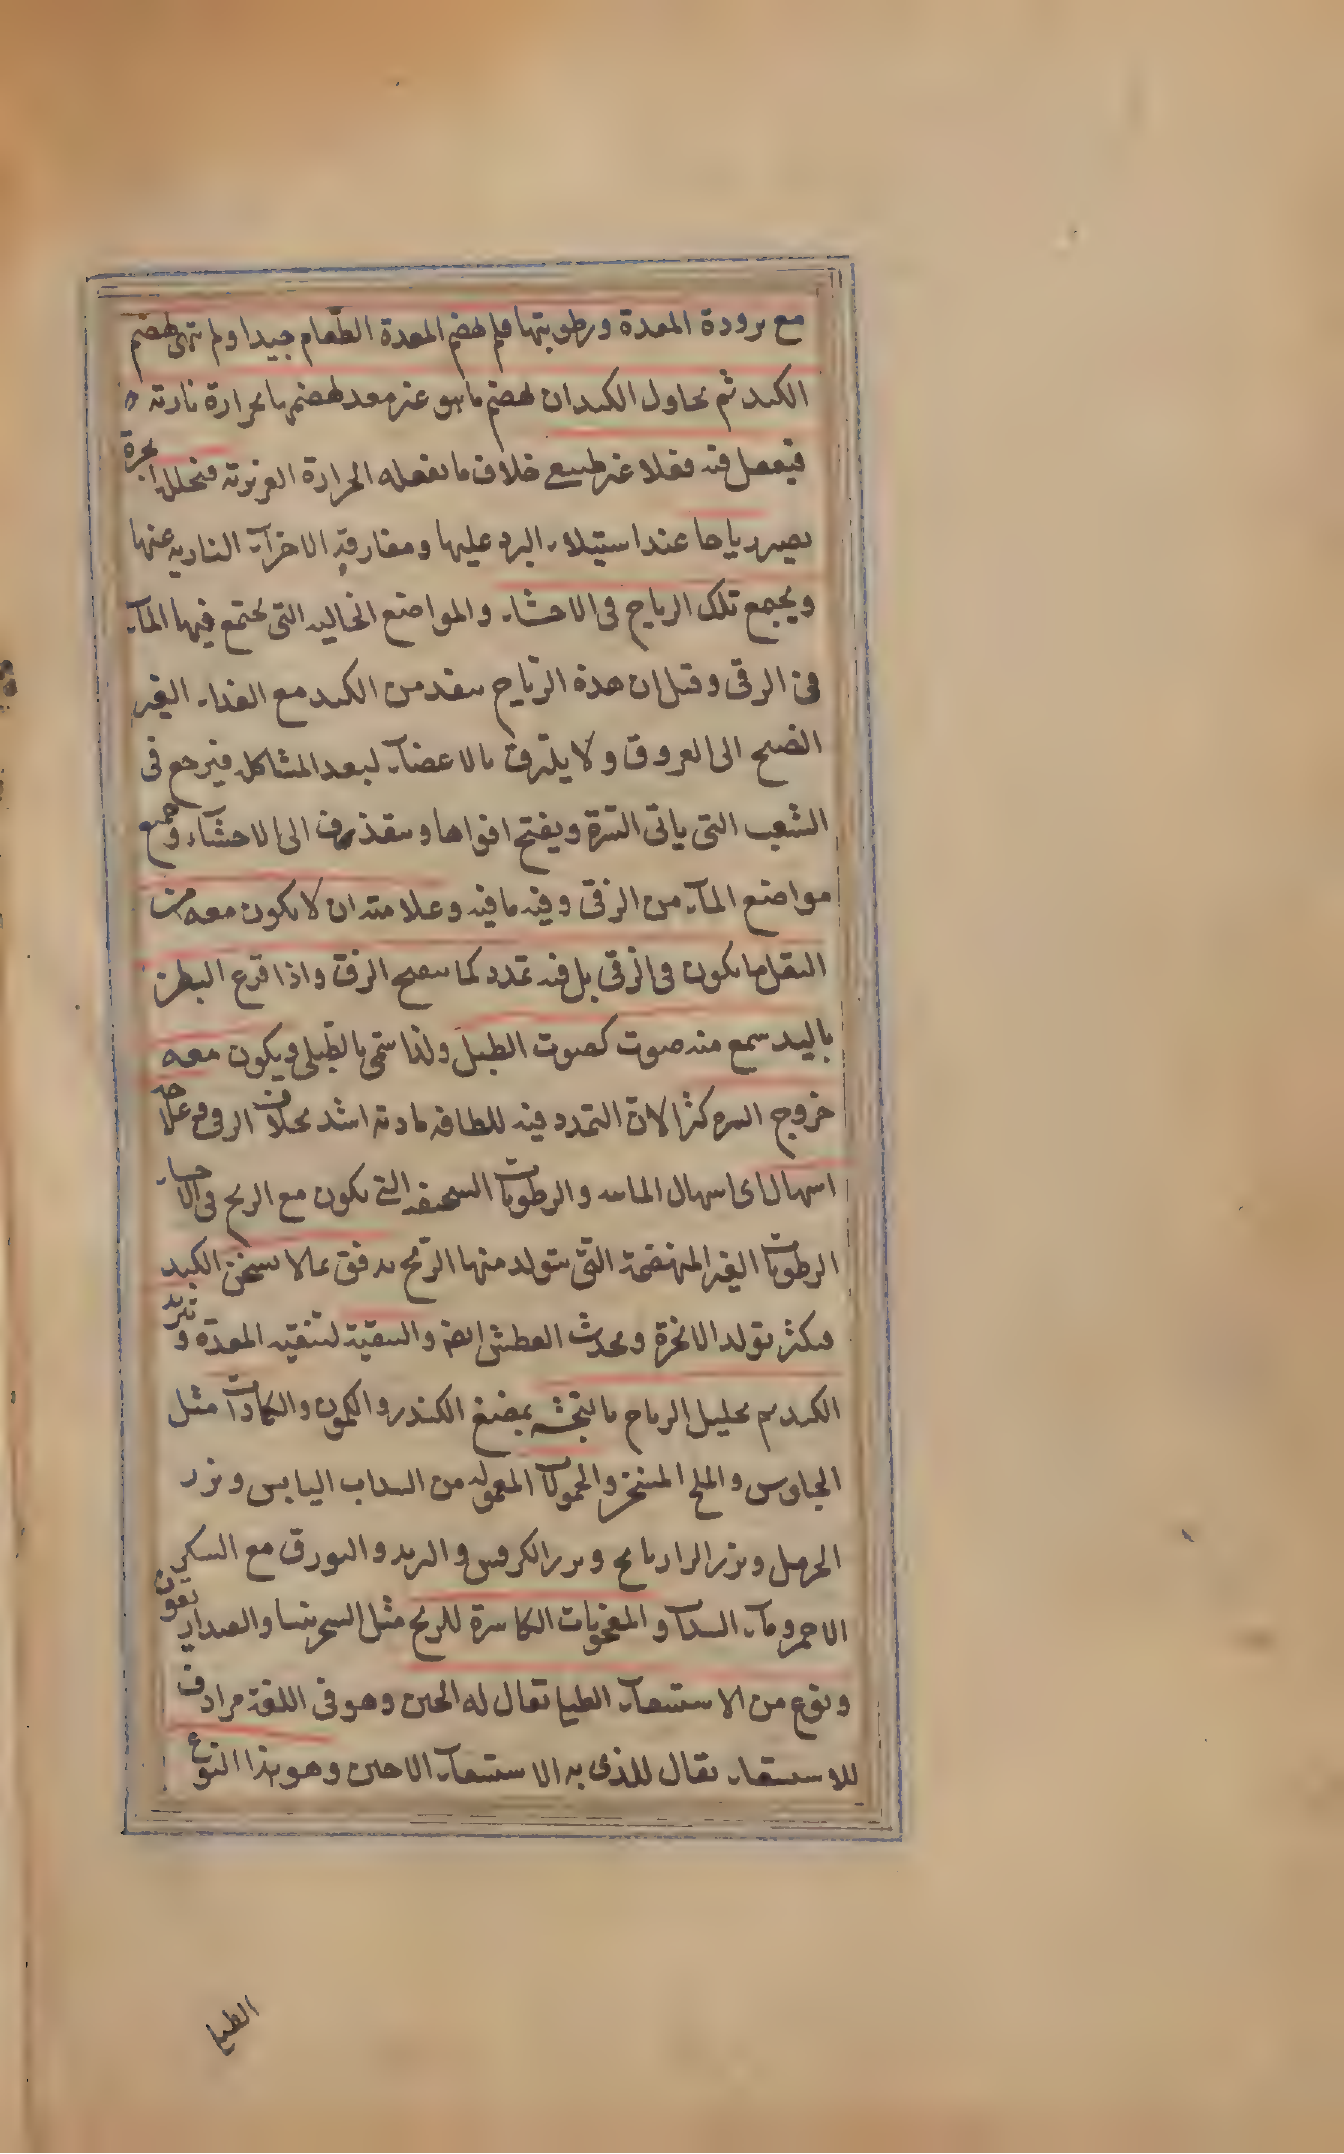 مع برودة المعدة ورطوبتها فلم لهضم المعدة الطعام جيدا ولم تهيئ لهضم
الكبد ثم يحاول الكبد ان لهضم ما هو غير معد لهضمها بحرارة نارته
فيفعل فيه فعلا غير طبيعي خلاف ما يفعله الحرارة الغريزته فيتحلل ابخرة
يصير رياحا عند استيلاء البرد عليها ومفارقة الاجزآء الناريه عنها
ويجمع تلك الرياح فى الاحشاء والمواضع الخاليه التى يجتمع فيها المآء
فى الزقى وقيل ان هذه الرياح ينفذ من الكبد مع الغذاء الغير
النضيج الى العروق ولا يلتزق بالاعضآء لبعد المشاكله فيرجع فى
الشعب التى ياتى السرة ويفتح افواها وينفذ الى الاحشآء وجميع
مواضع المآء من الزقى وفيه ما فيه وعلامته ان لا يكون معه من
الثقل ما يكون فى الزقى بل فيه تمدد كما ينفخ الزق واذا قرع البطن
باليد سمع منه صوت كصوت الطبل ولذا سمى بالطبلى ويكون معه
خروج السره كثرا لان التمدد فيه للطافه مادته اشد بخلاف الزقى وعلاجه
اسهال اى اسهال المائيه والرطوبات السخيفه التى يكون مع الريح فى الاحشاء
الرطوبات الغير المنهضمة التى يتولد منها الريح برفق بما لا يسخن الكبد
فيكثر تولد الابخرة ويحدث العطش ايضا والتنقية لتنقيه المعدة وتبريد
الكبد ثم تحليل الرياح بالتجشه بمضغ الكندر والكمون والكمادات مثل
الجاورس والملح المسخن والحمولات المعموله من السداب اليابس وبزر
الحرمل وبزر الرازيانج وبزر الكرفس والزبد والبورق مع السكر
الاحمر ومآء السداب والمعجونات الكاسرة للريح مثل السجرنيا
ونوع من الاستسقآء الطبلى يقال له الحبن وهو فى اللغة مرادف
للاستسقاء يقال للذى به الاستسقآء الاحبن وهو هذا النوع
الطبلى